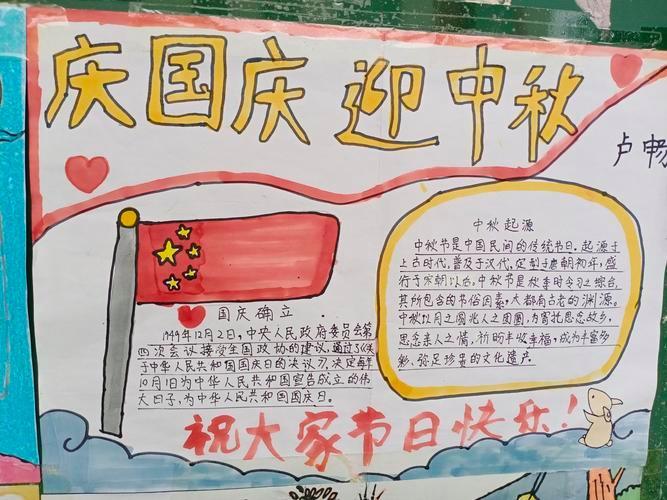 庆国庆 迎中秋
卢畅
中秋起源
中秋节是中国民间的传统节日。起源于
上古时代，普及于汉代，定制于唐朝初年，盛
行于宋朝以后。中秋节是秋季时令习俗综合，
其所包含的节俗因素，大都有古老的渊源。
中秋以月之圆兆人之团圆，为寄托思念故乡，
思念亲人之情，祈盼丰收幸福，成为丰富多
彩、弥足珍贵的文化遗产。
国庆确立
1949年12月2日，中央人民政府委员会第
四次会议接受全国政协的建议，通过了《关
于中华人民共和国国庆日的决议》，决定每年
10月1日为中华人民共和国宣告成立的伟
大日子，为中华人民共和国国庆日。
祝大家节日快乐！